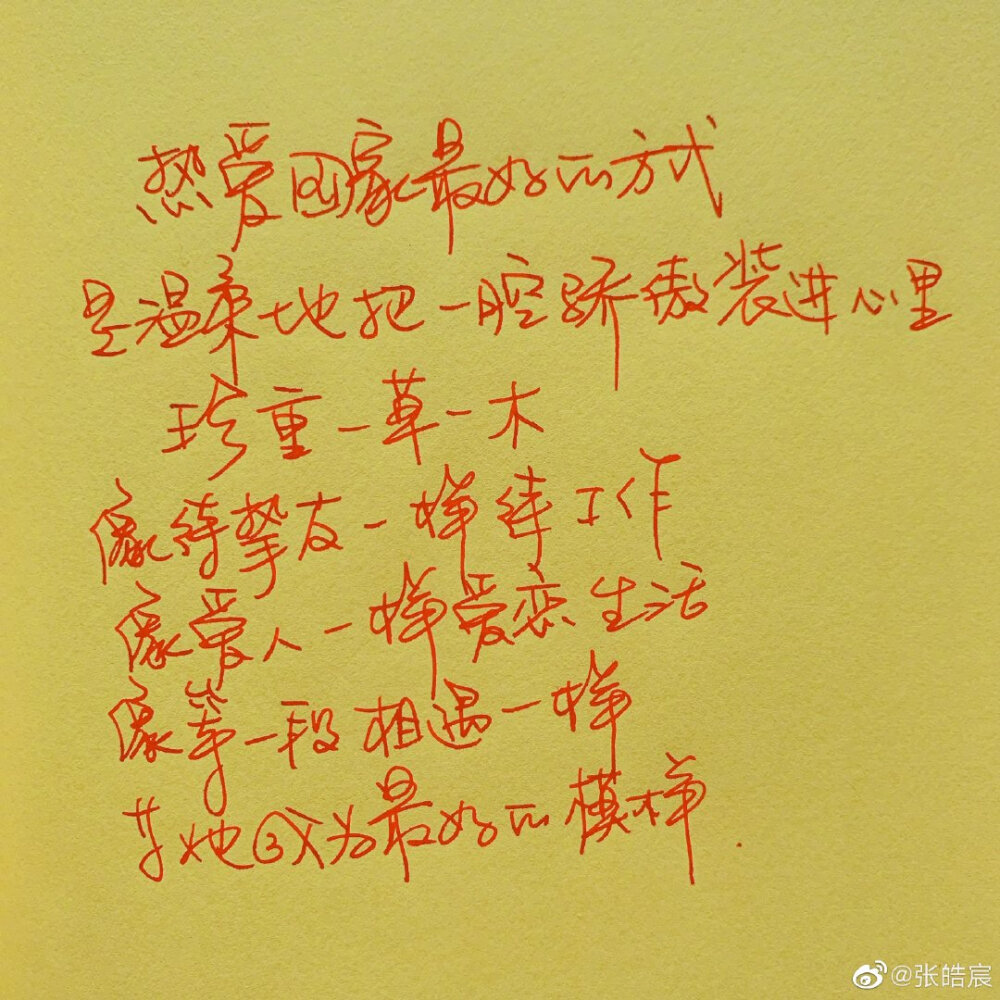 热爱国家最好的方式
是温柔地把一腔骄傲装进心里
珍重一草一木
像待挚友一样待工作
像爱人一样爱恋生活
像等一段相遇一样
等她成为最好的模样.
@张皓宸